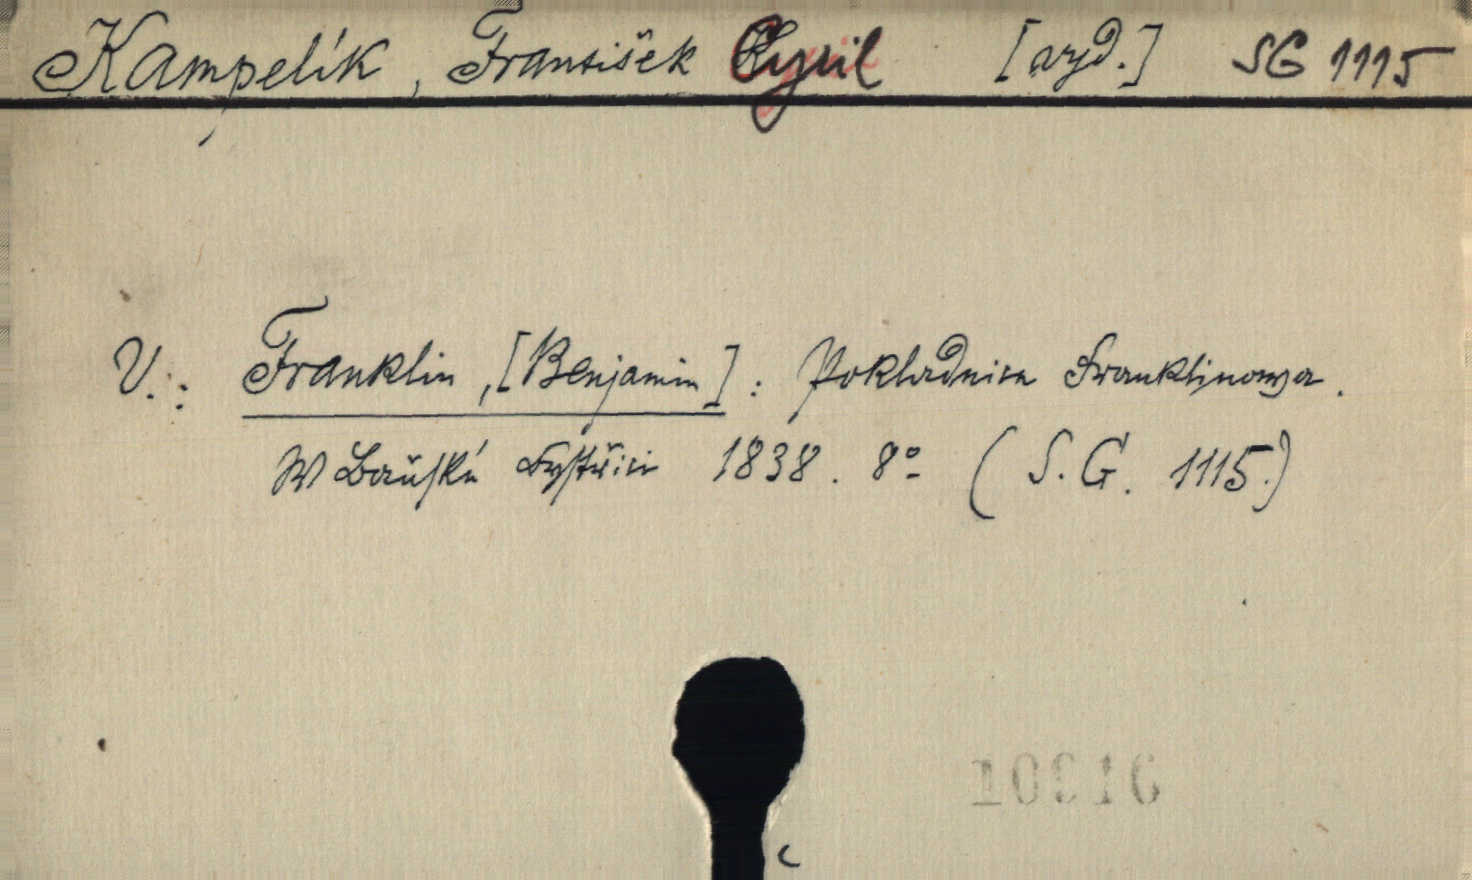 Kampelík, František Cyril [vyd.] SG 1115
V.: Franklin, [Benjamin]: Pokladnica Franklinowa.
W Baňské Bystřici 1838. 8° (S.G. 1115.)